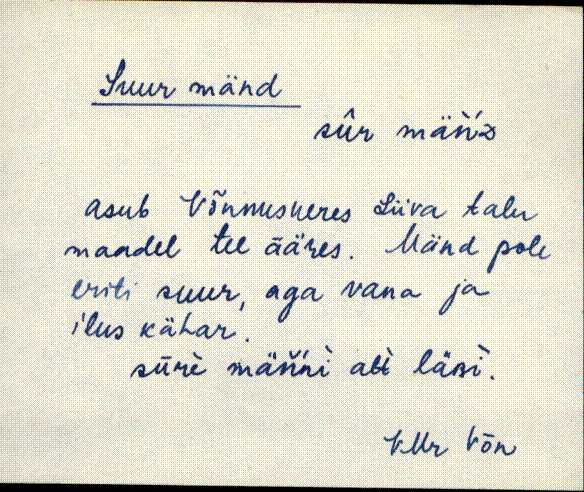 Suur mänd
sûr mäńńᴅ
asub Võnnuskeres Liiva talu
maadel tee ääres. Mänd pole
eriti suur, aga vana ja
ilus kähar.
sūrè mäńńì alì läsì.
VMr Võn